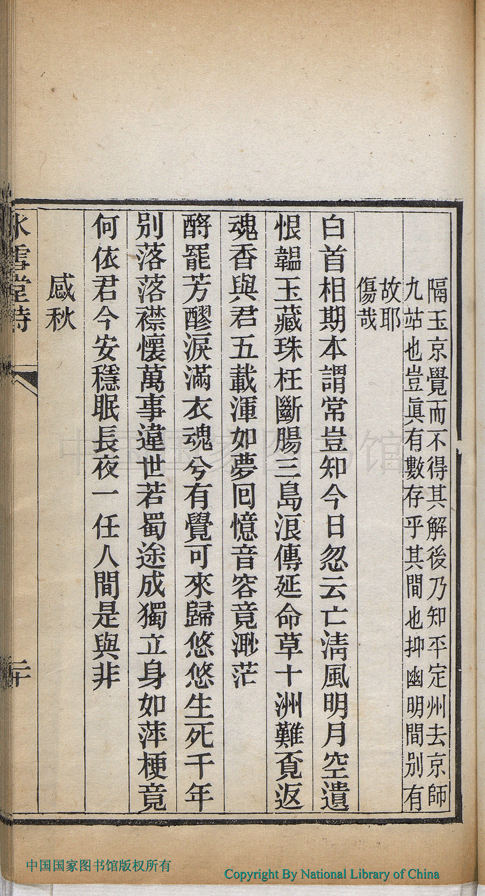 隔玉京覺而不得其解後乃知平定州去京師
九站也豈眞有數存乎其間也抑幽明間別有
故耶
傷哉
白首相期本謂常豈知今日忽云亡清風明月空遺
恨韞玉藏珠枉斷腸三島浪傳延命草十洲難覔返
魂香與君五載渾如夢回憶音容竟渺茫
酹罷芳醪淚滿衣魂兮有覺可來歸悠悠生死千年
別落落襟懷萬事違世若蜀途成獨立身如萍梗竟
何依君今安穩眠長夜一任人間是與非
感秋
冰雪堂詩
二十
中国国家图书馆
中国国家图书馆版权所有
Copyright By National Library of China